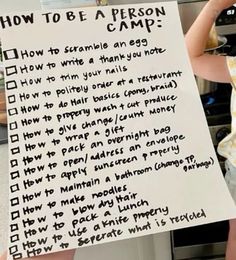 HOW TO BE A PERSON
CAMP:
How to scramble an egg
How to write a thank you note
How to trim your nails
How to politely order at a restaurant
How to do Hair basics (pony, braid)
How to properly wash + cut produce
How to give change/count money
How to wrap a gift
How to pack an overnight bag
How to open/address an envelope
How to apply sunscreen properly
How to Maintain a bathroom (change TP,
garbage)
How to make noodles
How to blow dry Hair
How to pack a Lunch
How to use a Knife properly
How to Seperate what is recycled